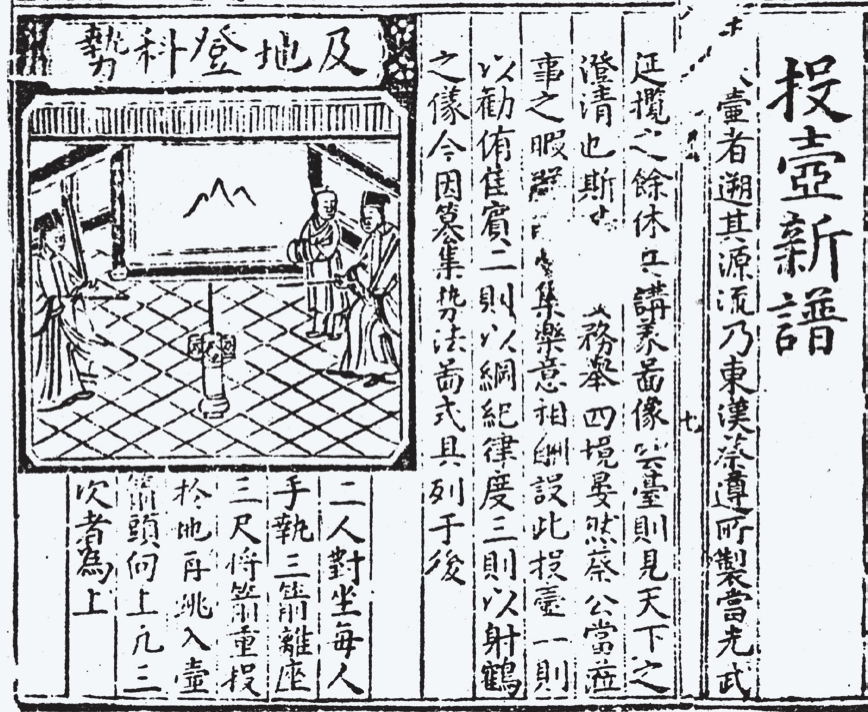 投壺新譜
壺者遡其源流乃東漢蔡遵所製當光武
延攬之餘休兵講義啚像雲臺則見天下之
澄清也斯 務舉四境晏然蔡公當蒞
事之暇 集樂意相酬設此投壺一則
以勸侑佳賓二則以綱紀律度三則以射鶴
之儀今因纂集勢法啚式具列于後
七
及地登科勢
二人對坐每人
手執三箭離座
三尺將箭重投
於地再跳入壺
箭頭向上凢三
次者為上